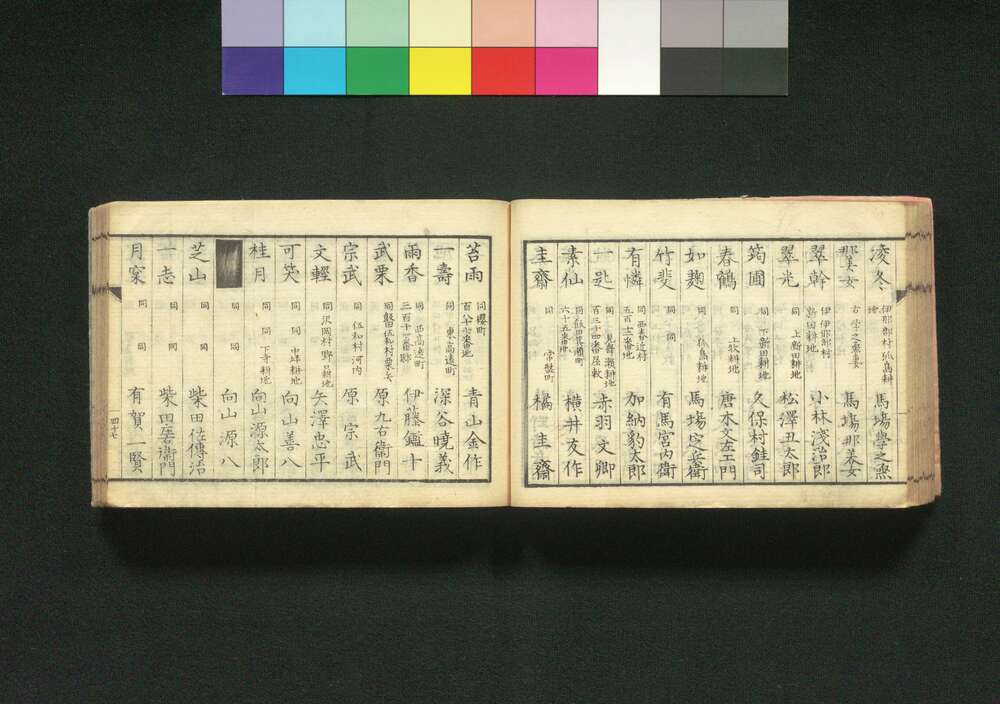 凌冬 伊那郡村狐島耕地 馬場學之㷀
那美女 右学之㷀妻 馬場那美女
翠幹 伊伊那部村 嶌田耕地 小林淺治郎
翠光 同 上新田耕地 松澤丑太郎
筠圃 同 下新田耕地 久保村鮭司
春鶴 同 上牧耕地 唐木金左エ門
如麹 同 狐島耕地 馬塲定兵衛
竹斐 同 同 有馬宮内衛
有憐 同 西春近村 五百十二番地 加納豹太郎
一匙 同 見舞瀬耕地 百三十四番屋敷 赤羽文卿
素仙 同 飯田箕瀬町 六十五番地 横井友作
圭齋 同 常盤町 橘圭齋
苔雨 同 櫻町 百八十六番地 青山金作
一壽 同 東高遠町 深谷曉義
雨香 同 西高遠町 三百十二番邸 伊藤鑑十
武栗 同 盤田伍和村栗矢 原九右衛門
宗武 同 伍和村河内 原宗武
文輕 同 沢岡村野呂耕地 矢澤忠平
可笑 同 同 中峰耕地 向山善八
桂月 同 同 下寺耕地 向山源太郎
同 同 向山源八
芝山 同 同 柴田佐傳治
一志 同 同 柴田善衛門
月窓 同 同 有賀一賢
四十七